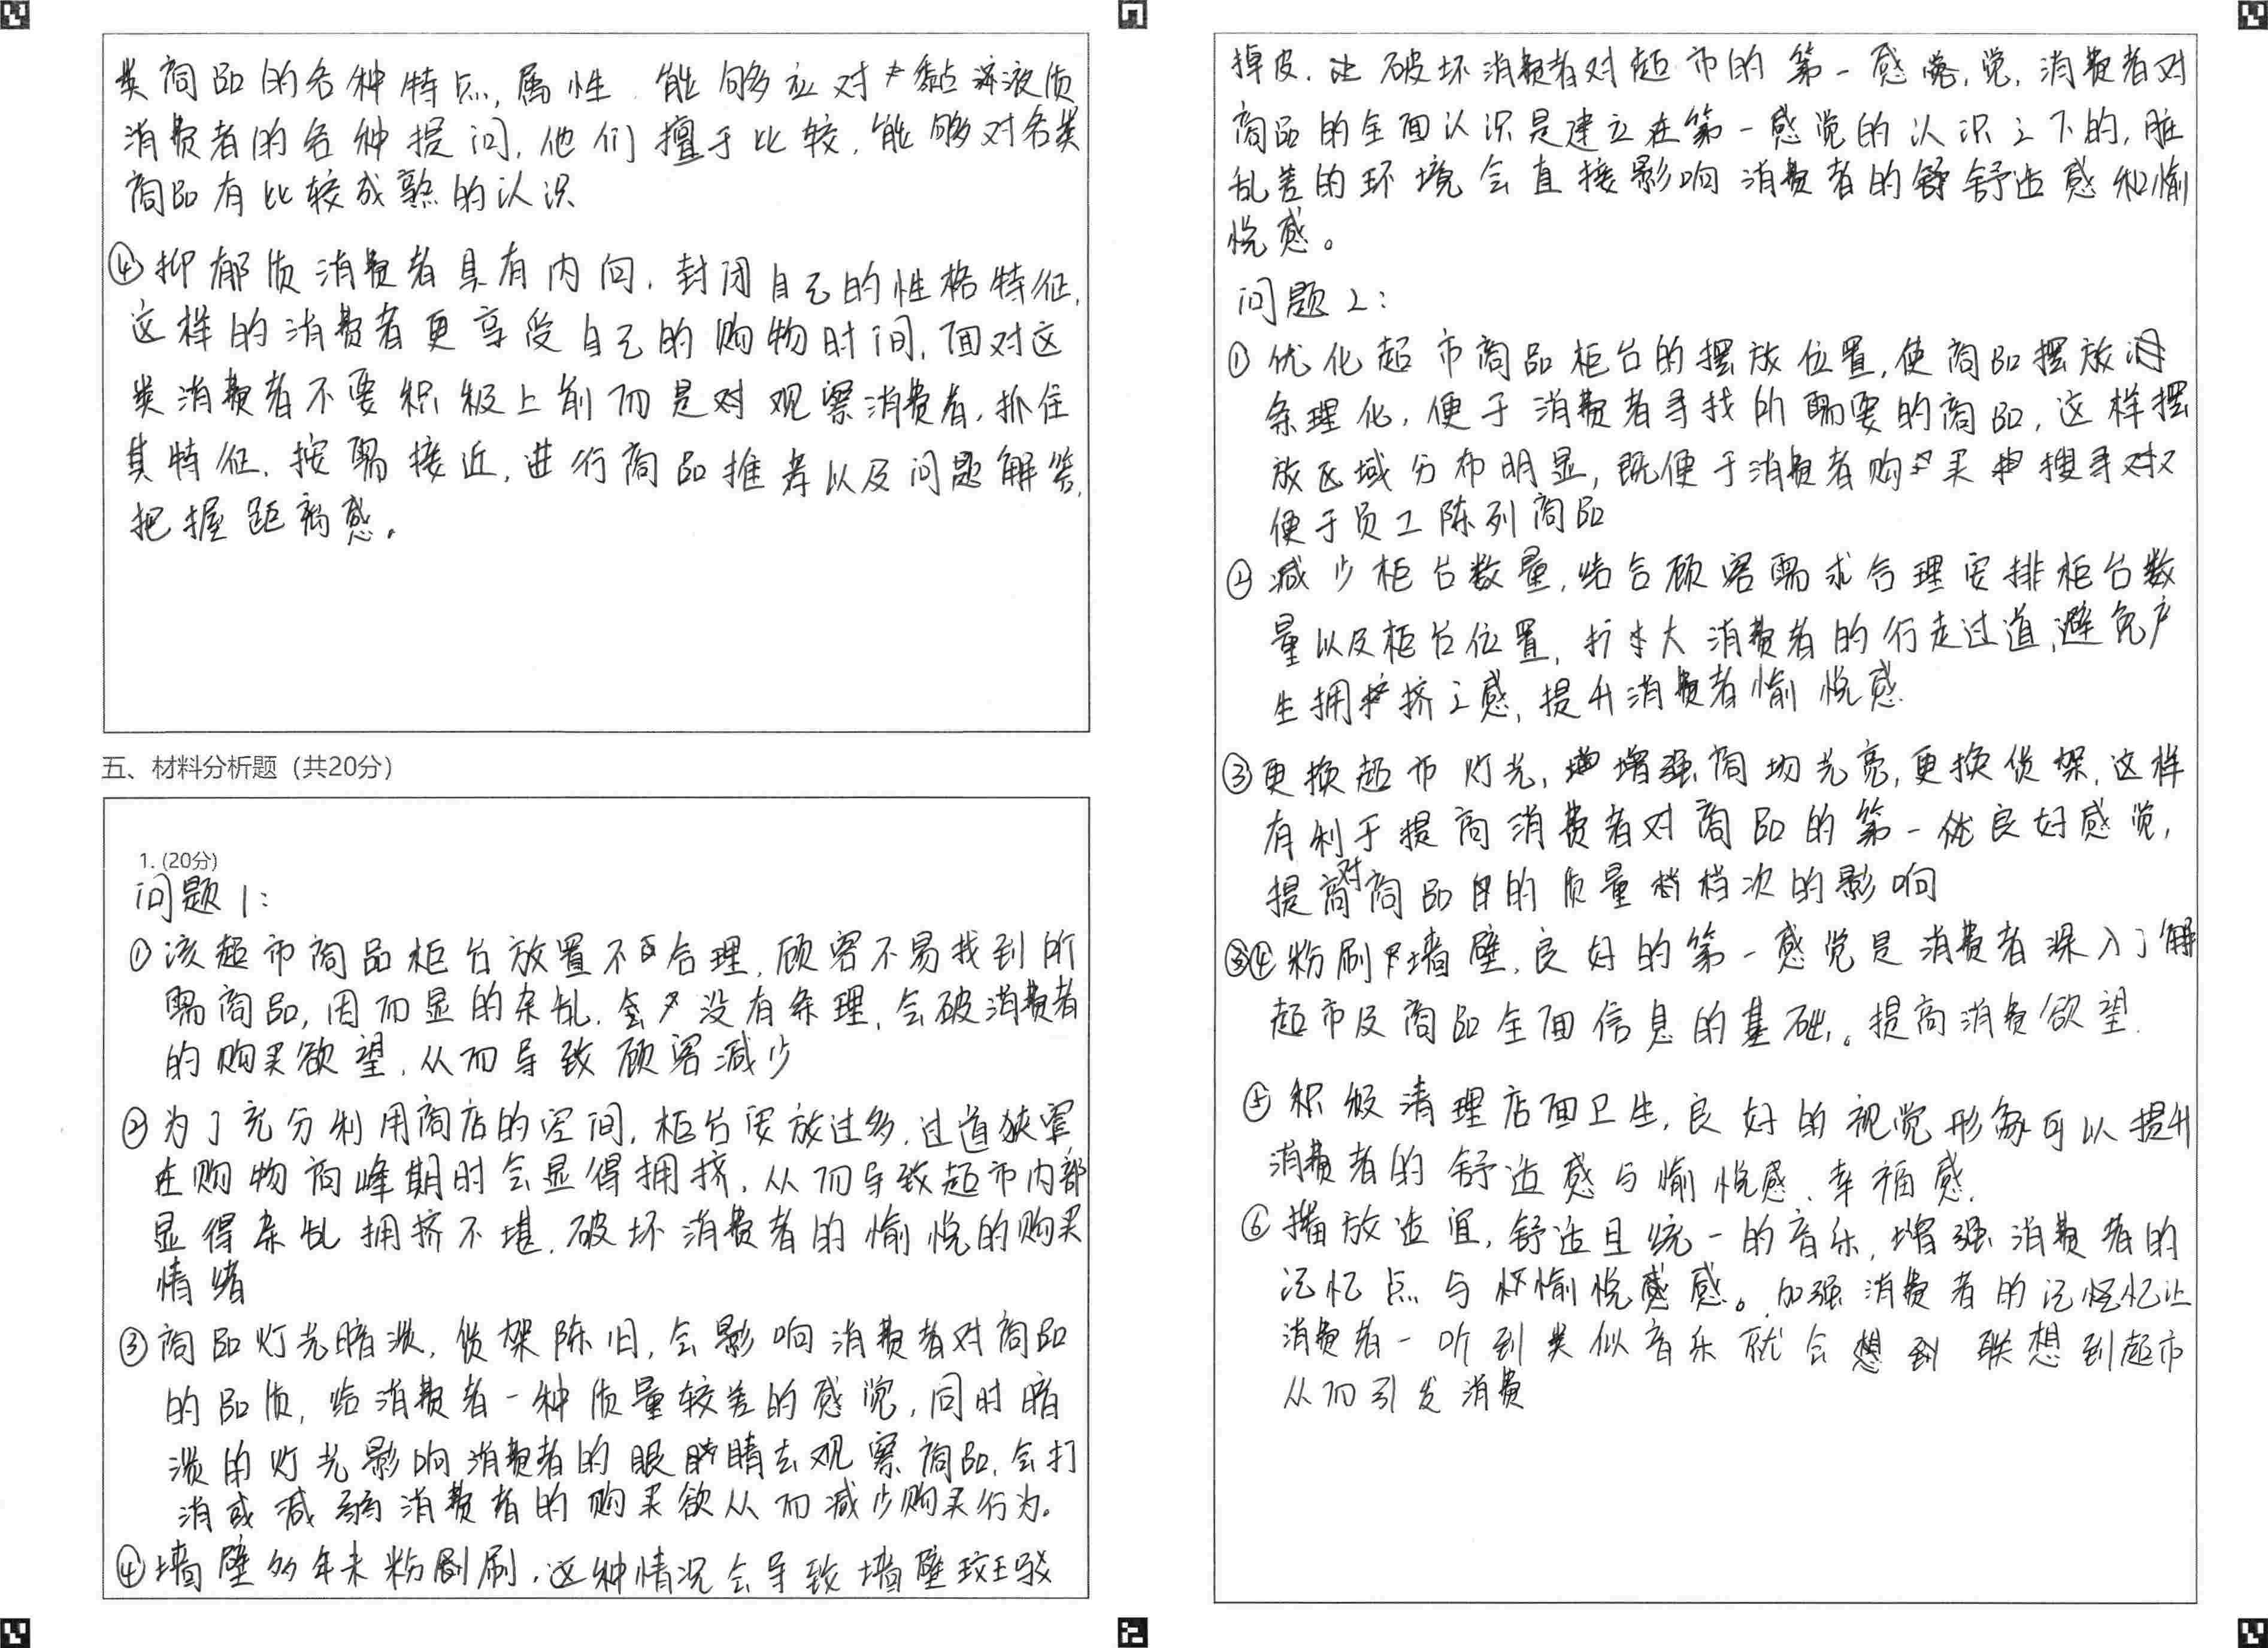 类商品的各种特点,属性.能够应对黏液质
消费者的各种提问,他们擅于比较,能够对各类
商品有比较成熟的认识
④抑郁质消费者具有内向.封闭自己的性格特征,
这样的消费者更享受自己的购物时间,面对这
类消费者不要积极上前而是对观察消费者,抓住
其特征.按需接近,进行商品推荐以及问题解答,
把握距离感。
五、材料分析题(共20分)
1. (20分)
问题1:
①该超市商品柜台放置不合理,顾客不易找到所
需商品,因而显的杂乱.会没有条理,会破消费者
的购买欲望,从而导致顾客减少
②为了充分利用商店的空间,柜台安放过多,过道狭窄
在购物高峰期时会显得拥挤,从而导致超市内部
显得杂乱拥挤不堪,破坏消费者的愉悦的购买
情绪
③商品灯光暗淡,货架陈旧,会影响消费者对商品
的品质,给消费者一种质量较差的感觉,同时暗
淡的灯光影响消费者的眼睛去观察商品,会打
消或减弱消费者的购买欲从而减少购买行为。
④墙壁多年未粉刷,这种情况会导致墙壁斑驳
掉皮.让破坏消费者对超市的第一感觉,消费者对
商品的全面认识是建立在第一感觉的认识之下的,脏
乱差的环境会直接影响消费者的舒适感和愉
悦感。
问题2:
①优化超市商品柜台的摆放位置,使商品摆放
条理化,便于消费者寻找所需要的商品,这样摆
放区域分布明显,既便于消费者购买搜寻又
便于员工陈列商品
②减少柜台数量,结合顾客需求合理安排柜台数
量以及柜台位置,扩大消费者的行走过道,避免产
生拥挤之感,提升消费者愉悦感
③更换超市灯光,增强商场光亮,更换货架,这样
有利于提高消费者对商品的第一优良好感觉,
提高对商品的质量档次的影响
④粉刷墙壁,良好的第一感觉是消费者深入了解
超市及商品全面信息的基础。提高消费欲望.
⑤积极清理店面卫生,良好的视觉形象可以提升
消费者的舒适感与愉悦感、幸福感.
⑥播放适宜,舒适且统一的音乐,增强消费者的
记忆点与怀愉悦感。加强消费者的记忆让
消费者一听到类似音乐就会想到联想到超市
从而引发消费